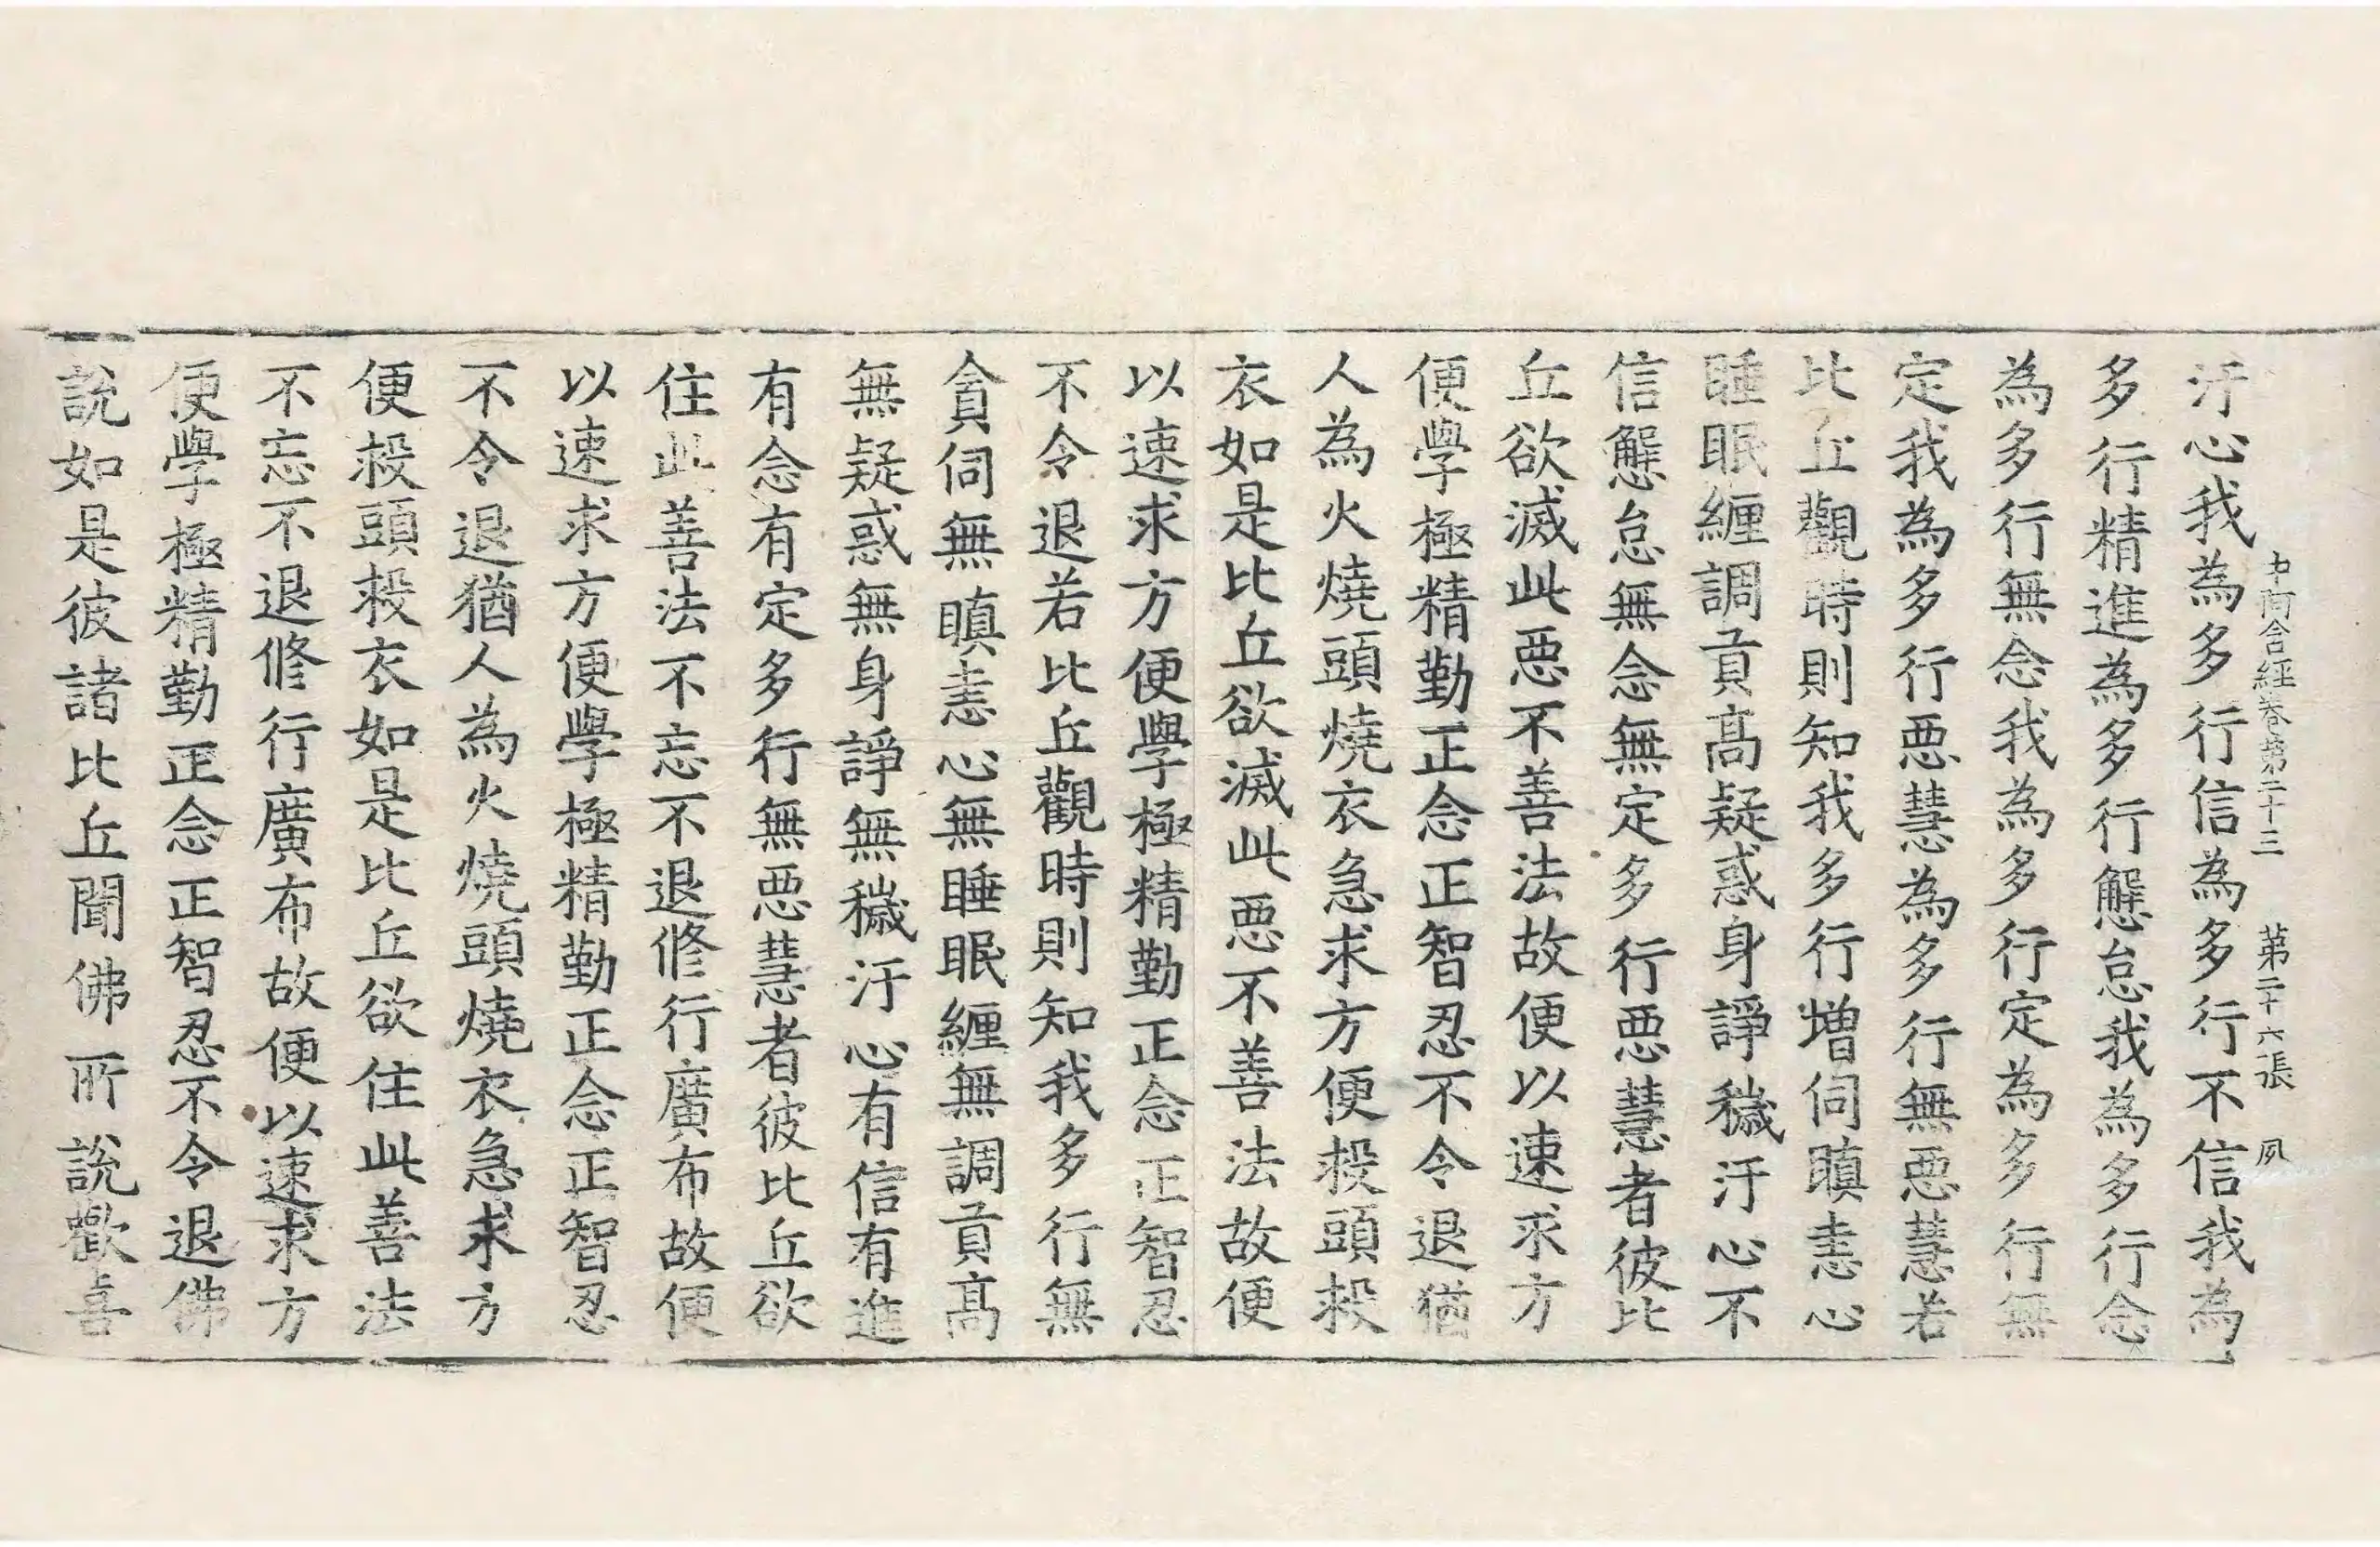 中阿含經卷第二十三　第二十六張　夙
汙心我為多行信為多行不信我為
多行精進為多行懈怠我為多行念
為多行無念我為多行定為多行無
定我為多行惡慧為多行無惡慧若
比丘觀時則知我多行增伺瞋恚心
睡眠纏調貢高疑惑身諍穢汙心不
信懈怠無念無定多行惡慧者彼比
丘欲滅此惡不善法故便以速求方
便學極精勤正念正智忍不令退猶
人為火燒頭燒衣急求方便投頭投
衣如是比丘欲滅此惡不善法故便
以速求方便學極精勤正念正智忍
不令退若比丘觀時則知我多行無
貪伺無瞋恚心無睡眠纏無調貢高
無疑惑無身諍無穢汙心有信有進
有念有定多行無惡慧者彼比丘欲
住此善法不忘不退修行廣布故便
以速求方便學極精勤正念正智忍
不令退猶人為火燒頭燒衣急求方
便投頭投衣如是比丘欲住此善法
不忘不退修行廣布故便以速求方
便學極精勤正念正智忍不令退佛
說如是彼諸比丘聞佛所說歡喜